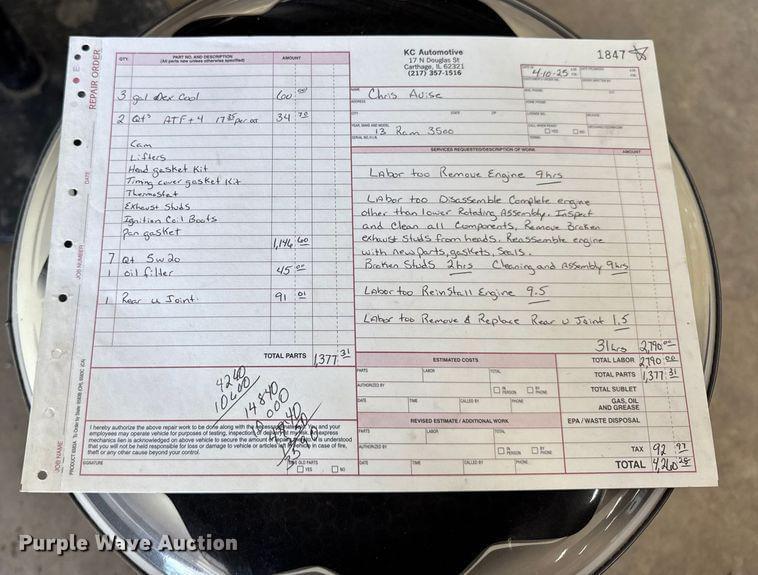 REPAIR ORDER
KC Automotive
17 N Douglas St
Carthage, IL 62321
(217) 357-1516
1847
4-10-25
QTY.
PART NO. AND DESCRIPTION
(All parts new unless otherwise specified)
AMOUNT
3 gal Dex Cool 60
2 Qts ATF+4 34 70
Cam
Lifters
Head gasket Kit
Timing cover gasket Kit
Thermostat
Exhaust Studs
Ignition Coil Boots
Pan gasket
1,146 60
7 Qt 5w20
1 oil filter 45 00
1 Rear u Joint 91 01
TOTAL PARTS 1,377 31
NAME Chris Avise
ADDRESS
CITY STATE ZIP
YEAR, MAKE AND MODEL
13 Ram 3500
SERVICES REQUESTED/DESCRIPTION OF WORK AMOUNT
LAbor too Remove Engine 9hrs
LAbor too Disassemble Complete engine
other than lower Rotating Assembly. Inspect
and Clean all Components, Remove Broken
exhaust studs from heads. Reassemble engine
with new parts, gaskets, Seals.
Broken Studs 2hrs Cleaning and Assembly 9hrs
LAbor too ReinStall Engine 9.5
LAbor too Remove & Replace Rear u Joint 1.5
31 hrs 2,790.00
ESTIMATED COSTS
PARTS LABOR TOTAL
AUTHORIZED BY
IN PERSON
BY PHONE
DATE TIME CALLED BY PHONE
REVISED ESTIMATE / ADDITIONAL WORK
PARTS LABOR TOTAL
AUTHORIZED BY
IN PERSON
BY PHONE
DATE TIME CALLED BY PHONE
TOTAL LABOR 2790 00
TOTAL PARTS 1,377 31
TOTAL SUBLET
GAS, OIL
AND GREASE
EPA / WASTE DISPOSAL
TAX 92 97
TOTAL 4,260 28
4240
10600
14840
I hereby authorize the above repair work to be done along with the
mechanics lien is acknowledged on above vehicle to secure the amount of
you will not be held responsible for loss or damage to vehicle or articles left in vehicle in case of fire,
theft or any other cause beyond your control.
SIGNATURE
OLD PARTS
YES NO
DATE
JOB NUMBER
JOB NAME
Purple Wave Auction